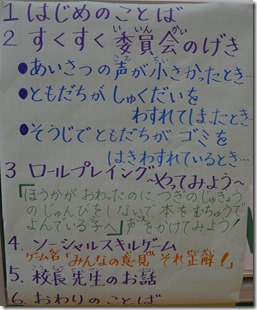 1 はじめのことば
2 すくすく委員会のげき
●あいさつの声が小さかったとき…
●ともだちが しゅくだいを
わすれてしまったとき…
●そうじでともだちが ゴミを
はきわすれているとき…
3 ロールプレイング
～やってみよう～
「ほうかがおわったのに、つぎのじゅぎょう
のじゅんびをしないで 本をむちゅうで
よんでいる子へ 声をかけてみよう!
4. ソーシャルスキルゲーム
ゲーム名「みんなの意見 それ正解!」
5. 校長先生のお話
6. おわりのことば